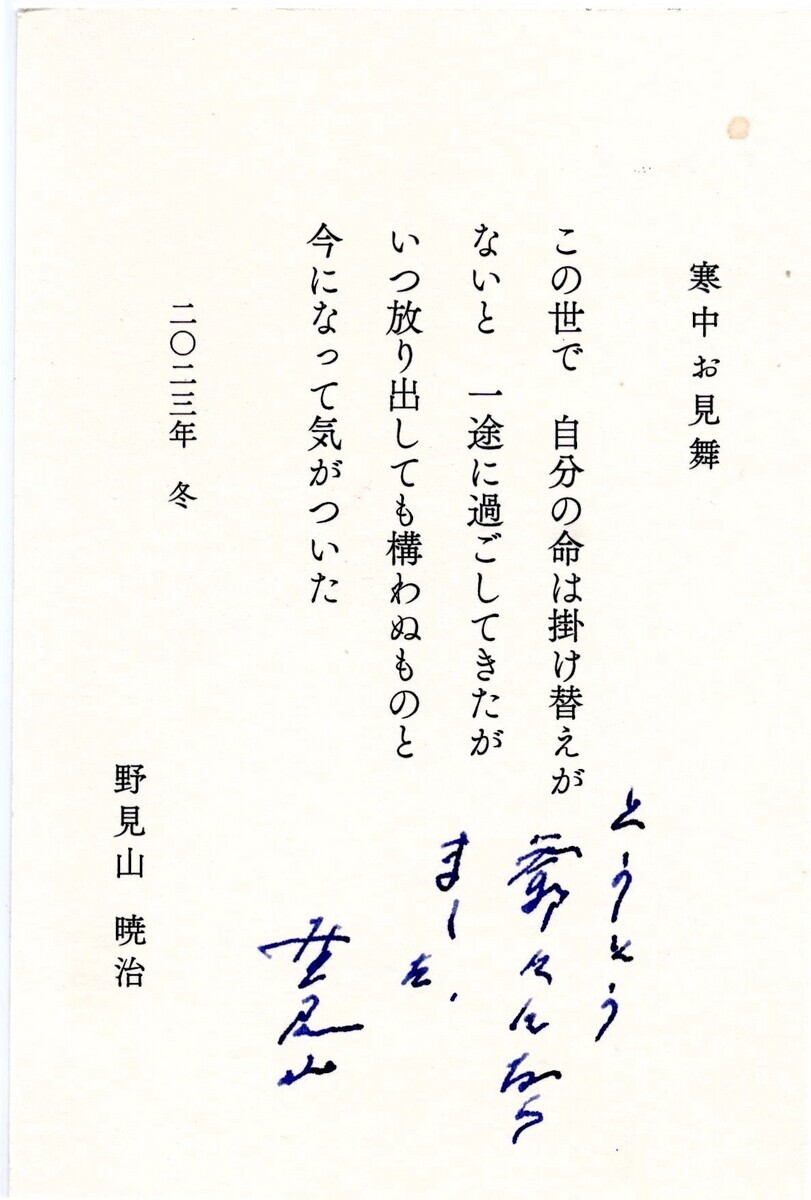 寒中お見舞
この世で　自分の命は掛け替えが
ないと　一途に過ごしてきたが
いつ放り出しても構わぬものと
今になって気がついた
二〇二三年　冬
野見山　暁治
とうとう
になり
ました、
野見山